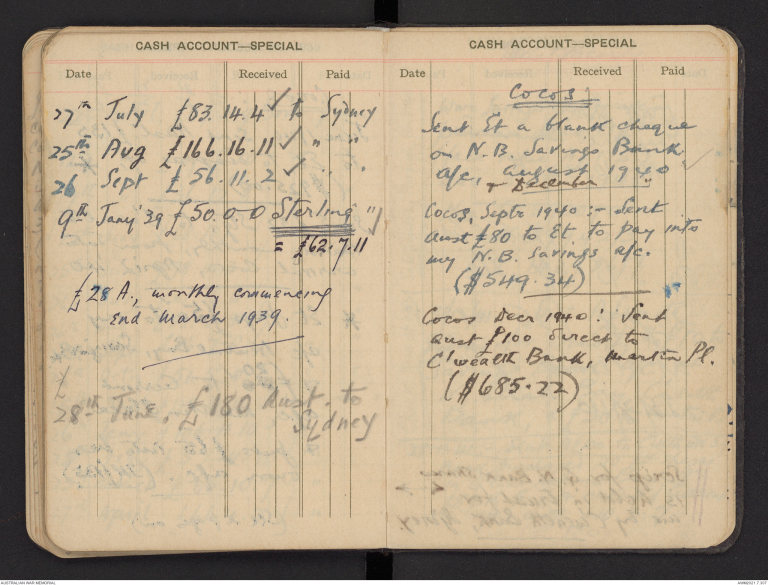 CASH ACCOUNT—SPECIAL
Date Received Paid
27th July £83.14.4 ✓ to Sydney
25th Aug £166.16.11 ✓ " "
26 Sept £56.11.2 ✓ " "
9th Jany '39 £50.0.0 Sterling " ✓
= £62.7.11
£28 A., monthly commencing
End March 1939.
£
28th June, £180 Aust. to
Sydney
CASH ACCOUNT—SPECIAL
Date Received Paid
Cocos
Sent Et a blank cheque
on N.B. Savings Bank
a/c, August 1940
+ December "
Cocos, Septr 1940 :- Sent
Aust £80 to Et to pay into
my N.B. Savings a/c.
($549.34)
Cocos Decr 1940 : Sent
Aust £100 direct to
C'wealth Bank, Martin Pl.
($685.22)
AUSTRALIAN WAR MEMORIAL